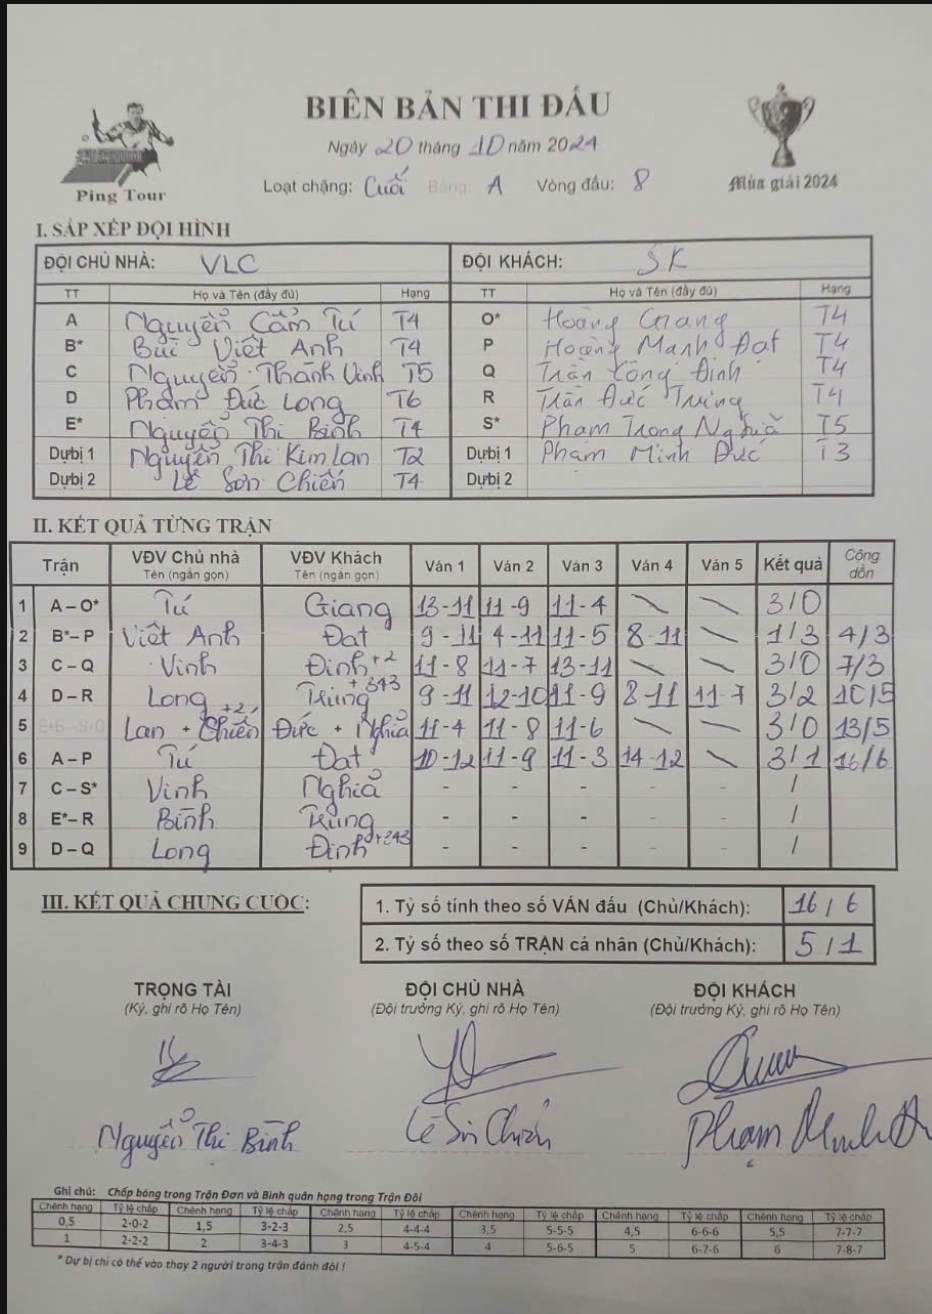 BIÊN BẢN THI ĐẤU
Ngày 20 tháng 10 năm 2024
Loạt chặng: Cuối Bảng: A Vòng đấu: 8
Ping Tour
Mùa giải 2024
I. SẮP XẾP ĐỘI HÌNH
ĐỘI CHỦ NHÀ: VLC ĐỘI KHÁCH: SK
TT Họ và Tên (đầy đủ) Hạng TT Họ và Tên (đầy đủ) Hạng
A Nguyễn Cẩm Tú T4 O* Hoàng Giang T4
B* Bùi Viết Anh T4 P Hoàng Mạnh Đạt T4
C Nguyễn Thành Vinh T5 Q Trần Công Định T4
D Phạm Đức Long T6 R Trần Đức Trung T4
E* Nguyễn Thị Bình T4 S* Phạm Trọng Nghĩa T5
Dựbị 1 Nguyễn Thị Kim Lan T2 Dựbị 1 Phạm Minh Đức T3
Dựbị 2 Lê Sơn Chiến T4 Dựbị 2
II. KẾT QUẢ TỪNG TRẬN
Trận VĐV Chủ nhà Tên (ngắn gọn) VĐV Khách Tên (ngắn gọn) Ván 1 Ván 2 Ván 3 Ván 4 Ván 5 Kết quả Cộng dồn
1 A – O* Tú Giang 13-11 11-9 11-4 \ \ 3/0
2 B*– P Viết Anh Đạt 9-11 4-11 11-5 8-11 \ 1/3 4/3
3 C – Q Vinh Định +2 11-8 11-7 13-11 \ \ 3/0 7/3
4 D – R Long Trung +343 9-11 12-10 11-9 8-11 11-7 3/2 10/5
5 E+B - S+O Lan + Chiến +2 Đức + Nghĩa 11-4 11-8 11-6 \ \ 3/0 13/5
6 A – P Tú Đạt 10-12 11-9 11-3 14-12 \ 3/1 16/6
7 C – S* Vinh Nghĩa - - - - - /
8 E*– R Bình Trung - - - - - /
9 D – Q Long Định +243 - - - - - /
III. KẾT QUẢ CHUNG CUỘC:
1. Tỷ số tính theo số VÁN đấu (Chủ/Khách): 16 / 6
2. Tỷ số theo số TRẬN cá nhân (Chủ/Khách): 5 / 1
TRỌNG TÀI ĐỘI CHỦ NHÀ ĐỘI KHÁCH
(Ký, ghi rõ Họ Tên) (Đội trưởng Ký, ghi rõ Họ Tên) (Đội trưởng Ký, ghi rõ Họ Tên)
Nguyễn Thị Bình Lê Sơn Chiến Phạm Minh Đ
Ghi chú: Chấp bóng trong Trận Đơn và Bình quân hạng trong Trận Đôi
Chênh hạng Tỷ lệ chấp Chênh hạng Tỷ lệ chấp Chênh hạng Tỷ lệ chấp Chênh hạng Tỷ lệ chấp Chênh hạng Tỷ lệ chấp Chênh hạng Tỷ lệ chấp
0,5 2-0-2 1,5 3-2-3 2,5 4-4-4 3,5 5-5-5 4,5 6-6-6 5,5 7-7-7
1 2-2-2 2 3-4-3 3 4-5-4 4 5-6-5 5 6-7-6 6 7-8-7
* Dự bị chỉ có thể vào thay 2 người trong trận đánh đôi !